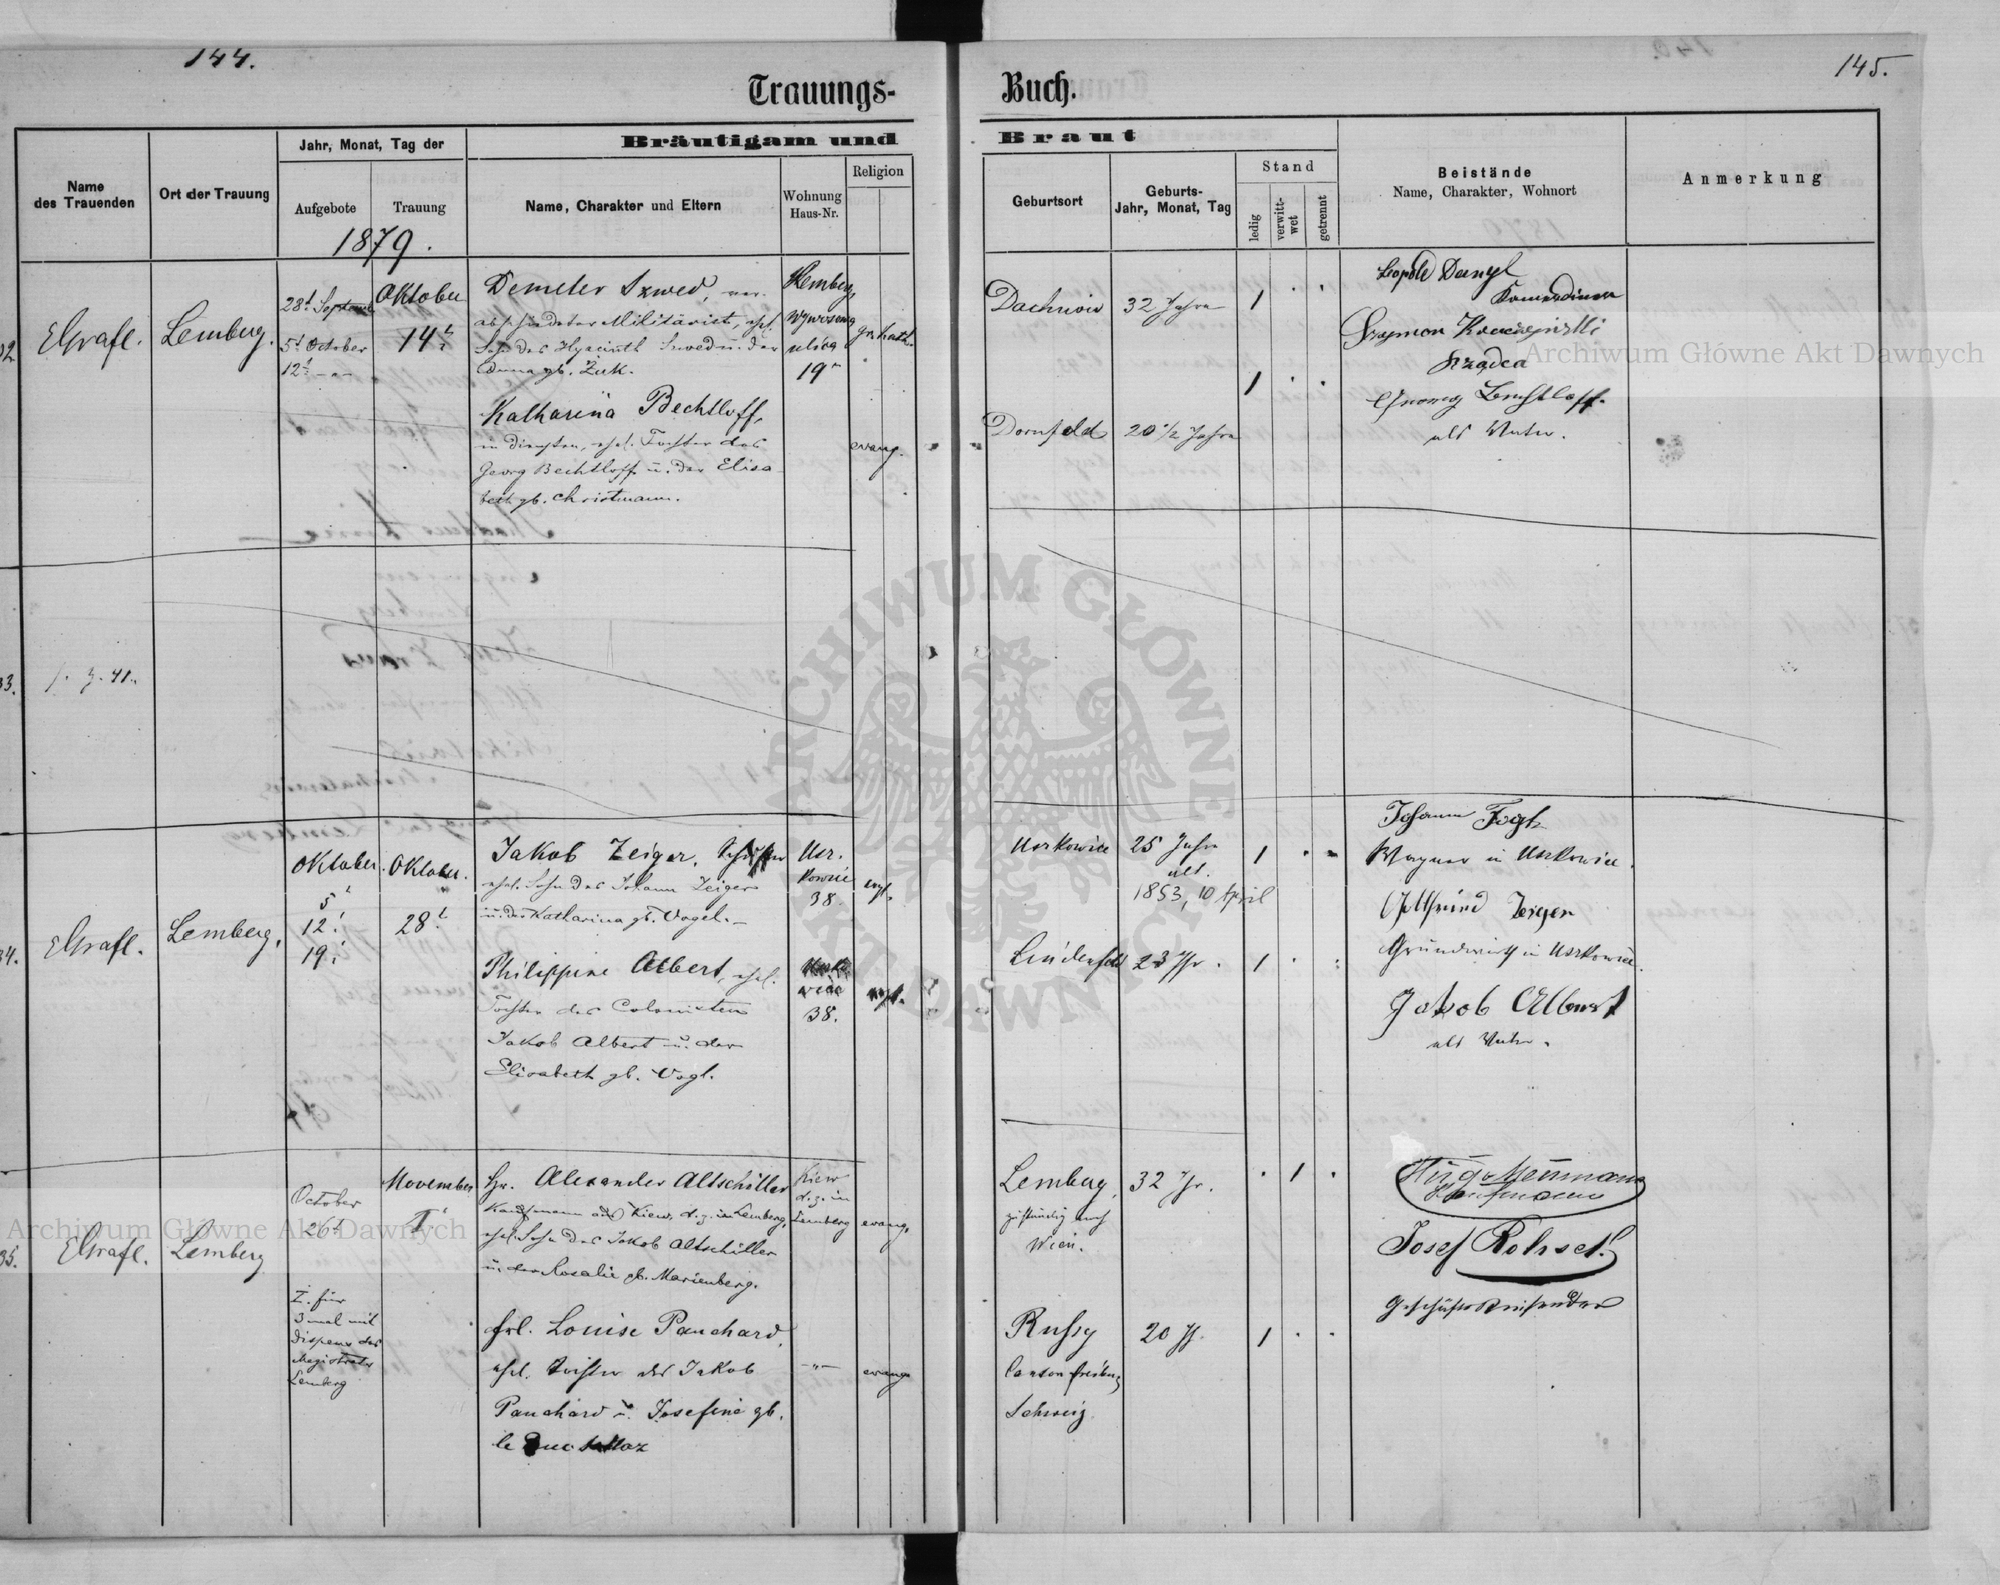 144.
145.
Trauungs-
Buch.
Bräutigam und
Braut
Name
des Trauenden
Ort der Trauung
Jahr, Monat, Tag der
Aufgebote
Trauung
Name, Charakter und Eltern
Wohnung
Haus-Nr.
Religion
Geburtsort
Geburts-
Jahr, Monat, Tag
Stand
ledig
verwitt-
wet
getrennt
Beistände
Name, Charakter, Wohnort
Anmerkung
1879.
EGrafl.
Lemberg.
28t
5t October
12t
Oktober
14t
Demeter Szwed,
Militärist, ehel.
Sohn des Hyacinth Szwed u. der
Anna gb. Żuk.
Katharina Bechtloff,
in Diensten, ehel. Tochter des
Georg Bechtloff u. der Elisa
beth gb. Christmann.
Lemberg,
ulica
19
gr. kath.
evang.
Dachnów
32 Jahre
1
Dornfeld
20 1/2 Jahre
1
Leopold
Kamerdiener
Szymon
Rządca
Georg Bechtloff
als Vater.
33.
34.
EGrafl.
Lemberg,
Oktober.
5t
12t
19t
Oktober.
28t
Jakob Zeiger,
ehel. Sohn des Johann Zeiger
u. der Katharina gb. Vogel.
Philippine Albert, ehel.
Tochter des Colonisten
Jakob Albert u. der
Elisabeth gb. Vogl.
Usz-
kowice
38.
wice
38.
evgl.
evgl.
Uszkowice
25 Jahre
alt.
1853, 10 April
1
Lindenfeld
23 Jhr.
1
Johann Vogl
Wagner in Uszkowice.
Gottfried Zeiger
Grundwirth in Uszkowice.
Jakob Albert
als Vater.
35.
EGrafl.
Lemberg
October
26t
I. für
3 mal mit
Dispens des
Magistrats
Lemberg
November
1t
Hr. Alexander Altschüller
Kaufmann aus Kiew, d. z. in Lemberg,
ehel. Sohn des Jakob Altschüller
u. der Rosalie gb. Marienberg.
Frl. Louise Panchard,
ehel. Tochter des Jakob
Panchard u. Josefine gb.
Kiew
d. z. in
Lemberg
-"-
evang.
evang.
Lemberg,
zuständig nach
Wien.
32 Jr.
1
Russy
Canton Freiburg
Schweiz.
20 Jr.
1
Hugo Neumann
Kaufmann
Josef
Geschäftsreisender
Archiwum Główne Akt Dawnych
Archiwum Główne Akt Dawnych
ARCHIWUM GŁÓWNE AKT DAWNYCH